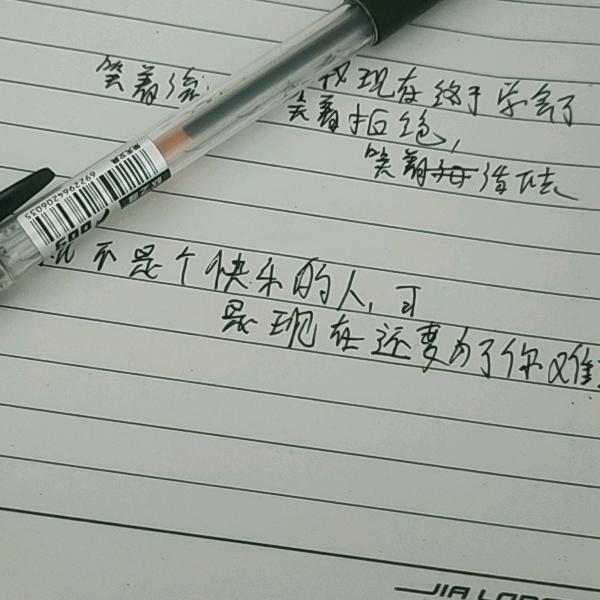 笑着 我现在终于学会了
笑着拒绝,
笑着活下去
不是个快乐的人,可
是现在还要为了你难
6922964206035
JIA